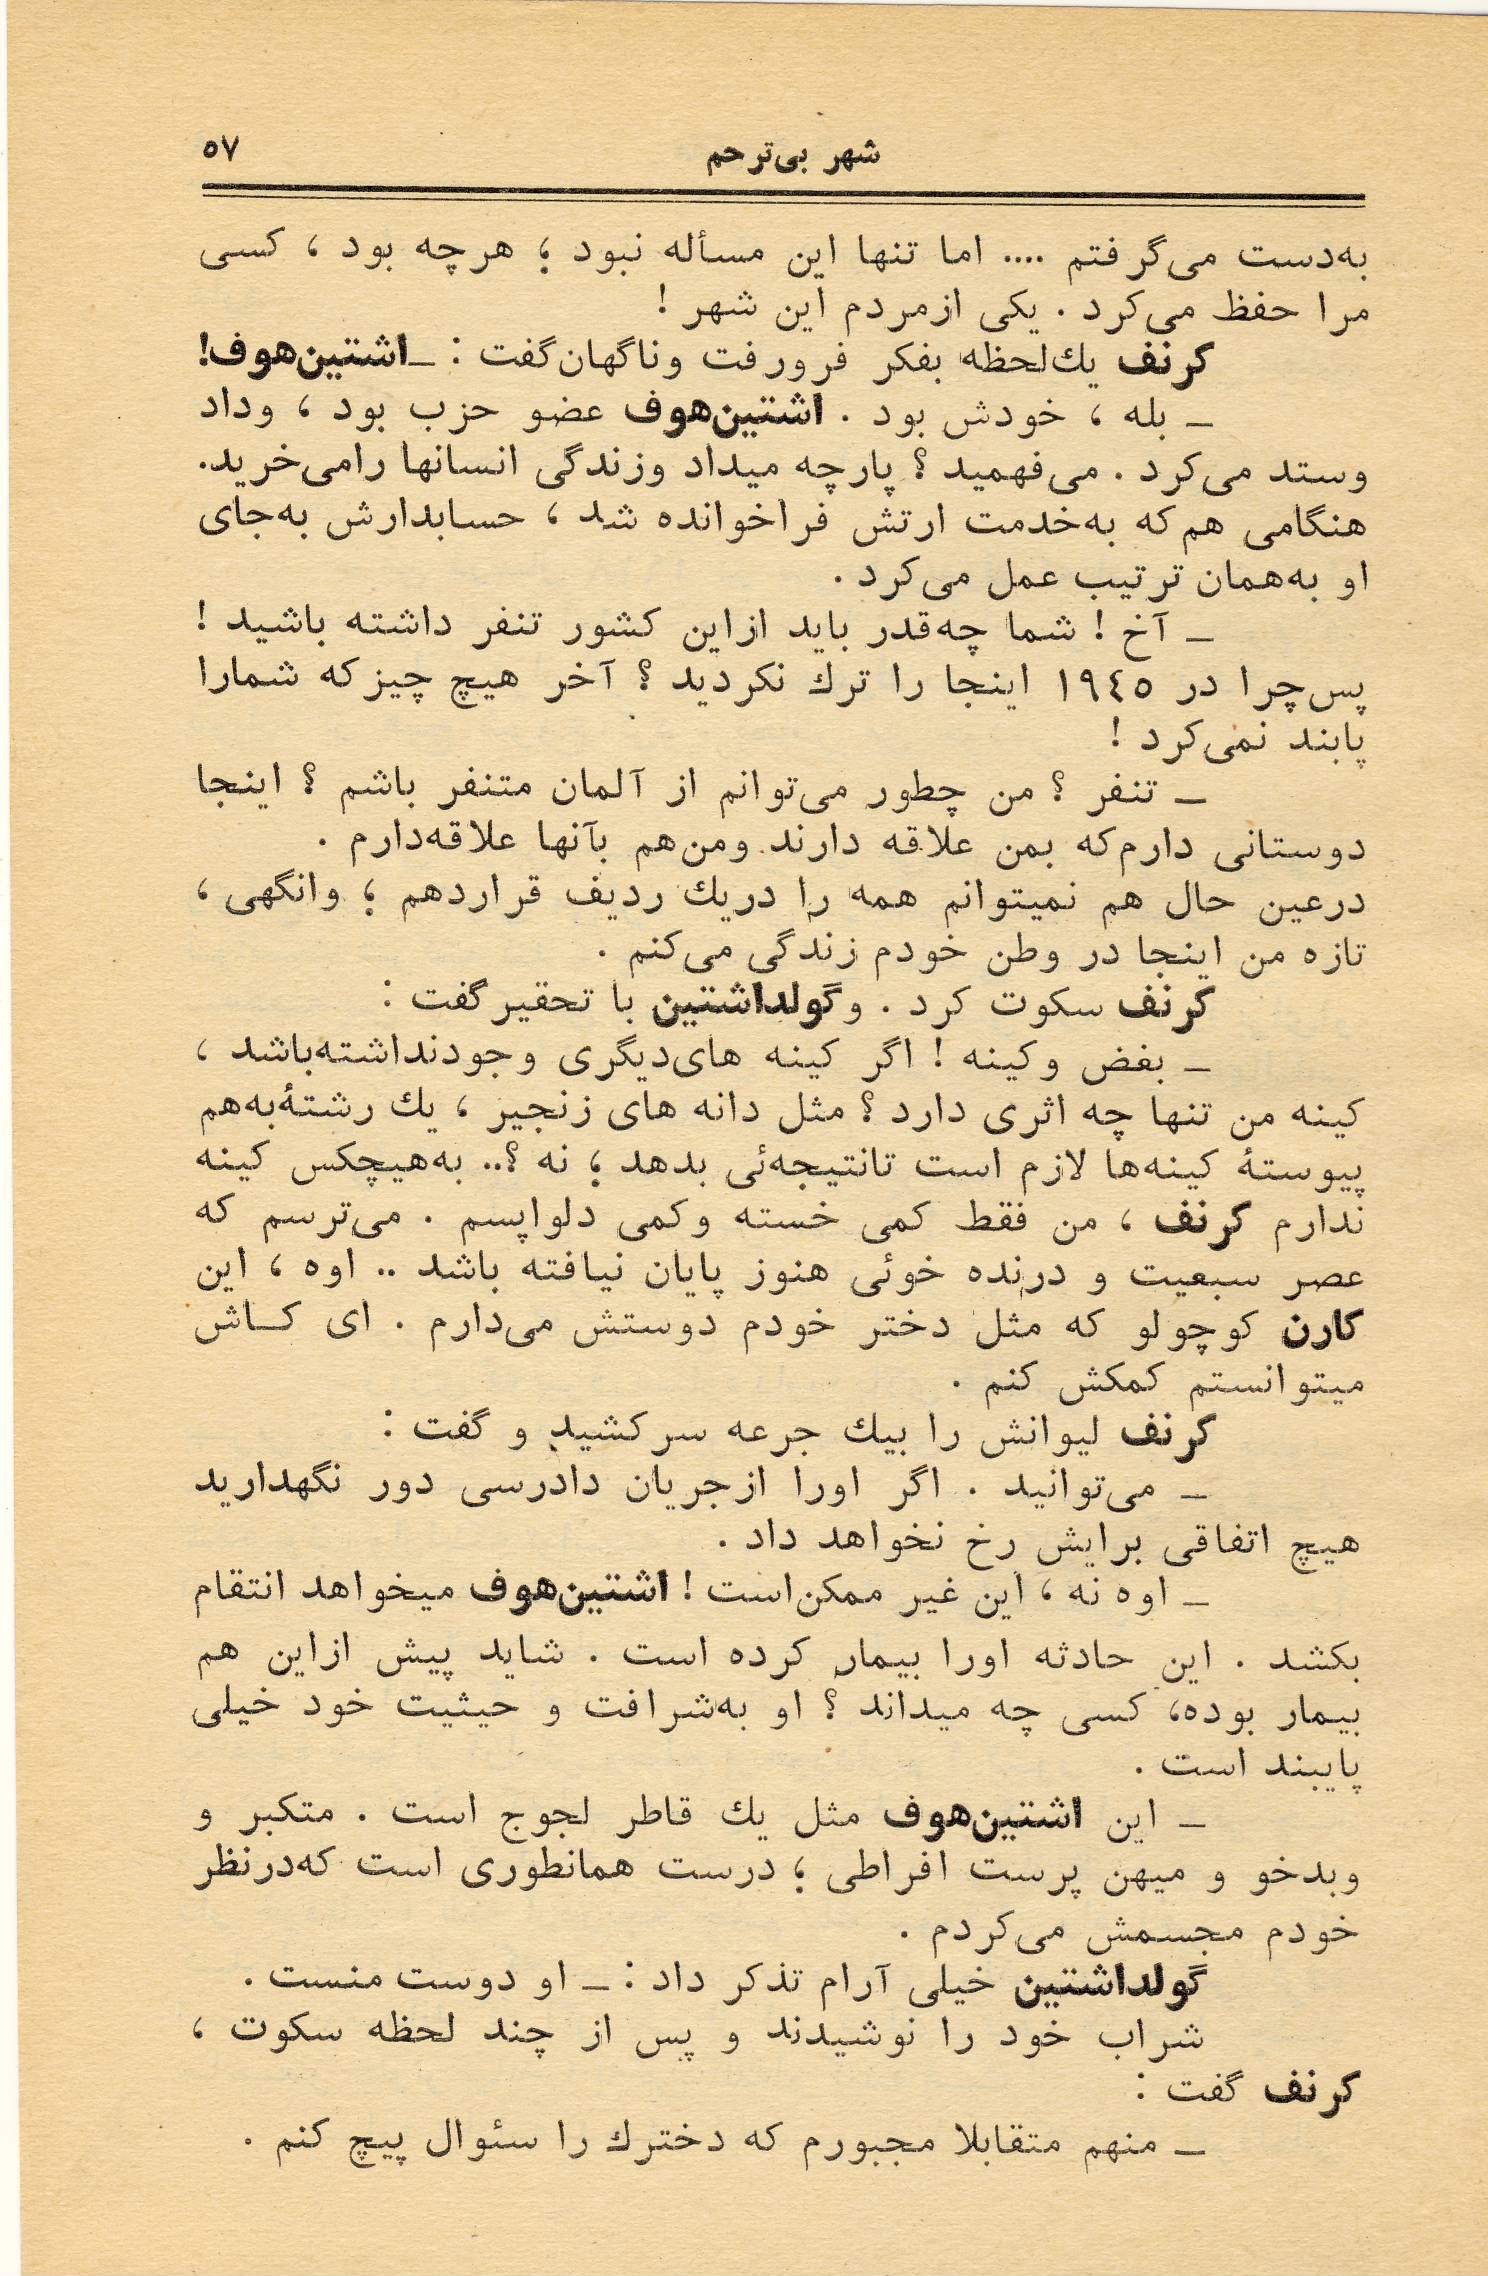 شهر بی‌ترحم
۵۷
به‌دست می‌گرفتم .... اما تنها این مسأله نبود ؛ هرچه بود ، کسی
مرا حفظ می‌کرد . یکی ازمردم این شهر !
کرنف یك‌لحظه بفکر فرورفت وناگهان‌گفت : ـ اشتین‌هوف!
ـ بله ، خودش بود . اشتین‌هوف عضو حزب بود ، وداد
وستد می‌کرد . می‌فهمید ؟ پارچه میداد وزندگی انسانها رامی‌خرید.
هنگامی هم‌که به‌خدمت ارتش فراخوانده شد ، حسابدارش به‌جای
او به‌همان ترتیب عمل می‌کرد .
ـ آخ ! شما چه‌قدر باید ازاین کشور تنفر داشته باشید !
پس‌چرا در ۱۹٤۵ اینجا را ترك نکردید ؟ آخر هیچ چیزکه شمارا
پابند نمی‌کرد !
ـ تنفر ؟ من چطور می‌توانم از آلمان متنفر باشم ؟ اینجا
دوستانی دارم‌که بمن علاقه دارند ومن‌هم بآنها علاقه‌دارم .
درعین حال هم نمیتوانم همه را دریك ردیف قراردهم ؛ وانگهی ،
تازه من اینجا در وطن خودم زندگی می‌کنم .
کرنف سکوت کرد . وگولداشتین با تحقیرگفت :
ـ بفض وکینه ! اگر کینه های‌دیگری وجودنداشته‌باشد ،
کینه من تنها چه اثری دارد ؟ مثل دانه های زنجیر ، یك رشتهٔ‌به‌هم
پیوستهٔ کینه‌ها لازم است تانتیجه‌ئی بدهد ؛ نه ؟.. به‌هیچکس کینه
ندارم کرنف ، من فقط کمی خسته وکمی دلواپسم . می‌ترسم که
عصر سبعیت و درنده خوئی هنوز پایان نیافته باشد .. اوه ، این
کارن کوچولو که مثل دختر خودم دوستش می‌دارم . ای کــاش
میتوانستم کمکش کنم .
کرنف لیوانش را بیك جرعه سرکشید و گفت :
ـ می‌توانید . اگر اورا ازجریان دادرسی دور نگهدارید
هیچ اتفاقی برایش رخ نخواهد داد .
ـ اوه نه ، این غیر ممکن‌است ! اشتین‌هوف میخواهد انتقام
بکشد . این حادثه اورا بیمار کرده است . شاید پیش ازاین هم
بیمار بوده، کسی چه میداند ؟ او به‌شرافت و حیثیت خود خیلی
پایبند است .
ـ این اشتین‌هوف مثل یك قاطر لجوج است . متکبر و
وبدخو و میهن پرست افراطی ؛ درست همانطوری است که‌درنظر
خودم مجسمش می‌کردم .
گولداشتین خیلی آرام تذکر داد : ـ او دوست منست .
شراب خود را نوشیدند و پس از چند لحظه سکوت ،
کرنف گفت :
ـ منهم متقابلا مجبورم که دخترك را سئوال پیچ کنم .